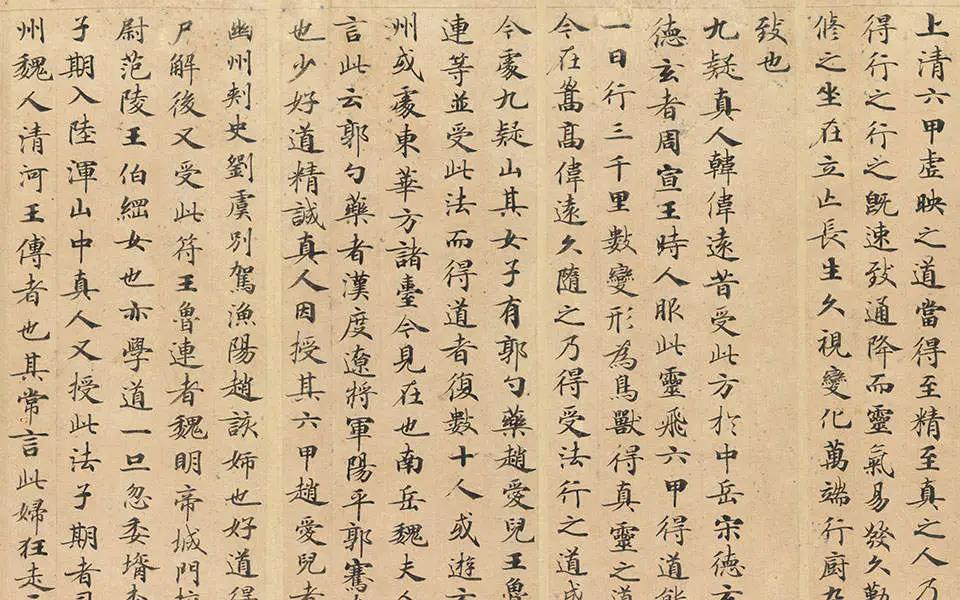 上清六甲虛映之道當得至精至真之人乃
得行之行之既速致通降而靈氣易發久勤
修之坐在立亾長生久視變化萬端行廚九
致也
九疑真人韓偉遠昔受此方於中岳宋德
德玄者周宣王時人服此靈飛六甲得道能
一日行三千里數變形為鳥獸得真靈之道
今在嵩高偉遠久隨之乃得受法行之道成
今處九疑山其女子有郭勺藥趙愛兒王魯
連等並受此法而得道者復數十人或遊
州或處東華方諸臺今見在也南岳魏夫人
言此云郭勺藥者漢度遼將軍陽平郭騫
也少好道精誠真人因授其六甲趙愛兒者
幽州刾史劉虞別駕漁陽趙該姉也好道得
尸解後又受此符王魯連者魏明帝城門校
尉范陵王伯綱女也亦學道一旦忽委壻
子期入陸渾山中真人又授此法子期者
州魏人清河王傳者也其常言此婦狂走